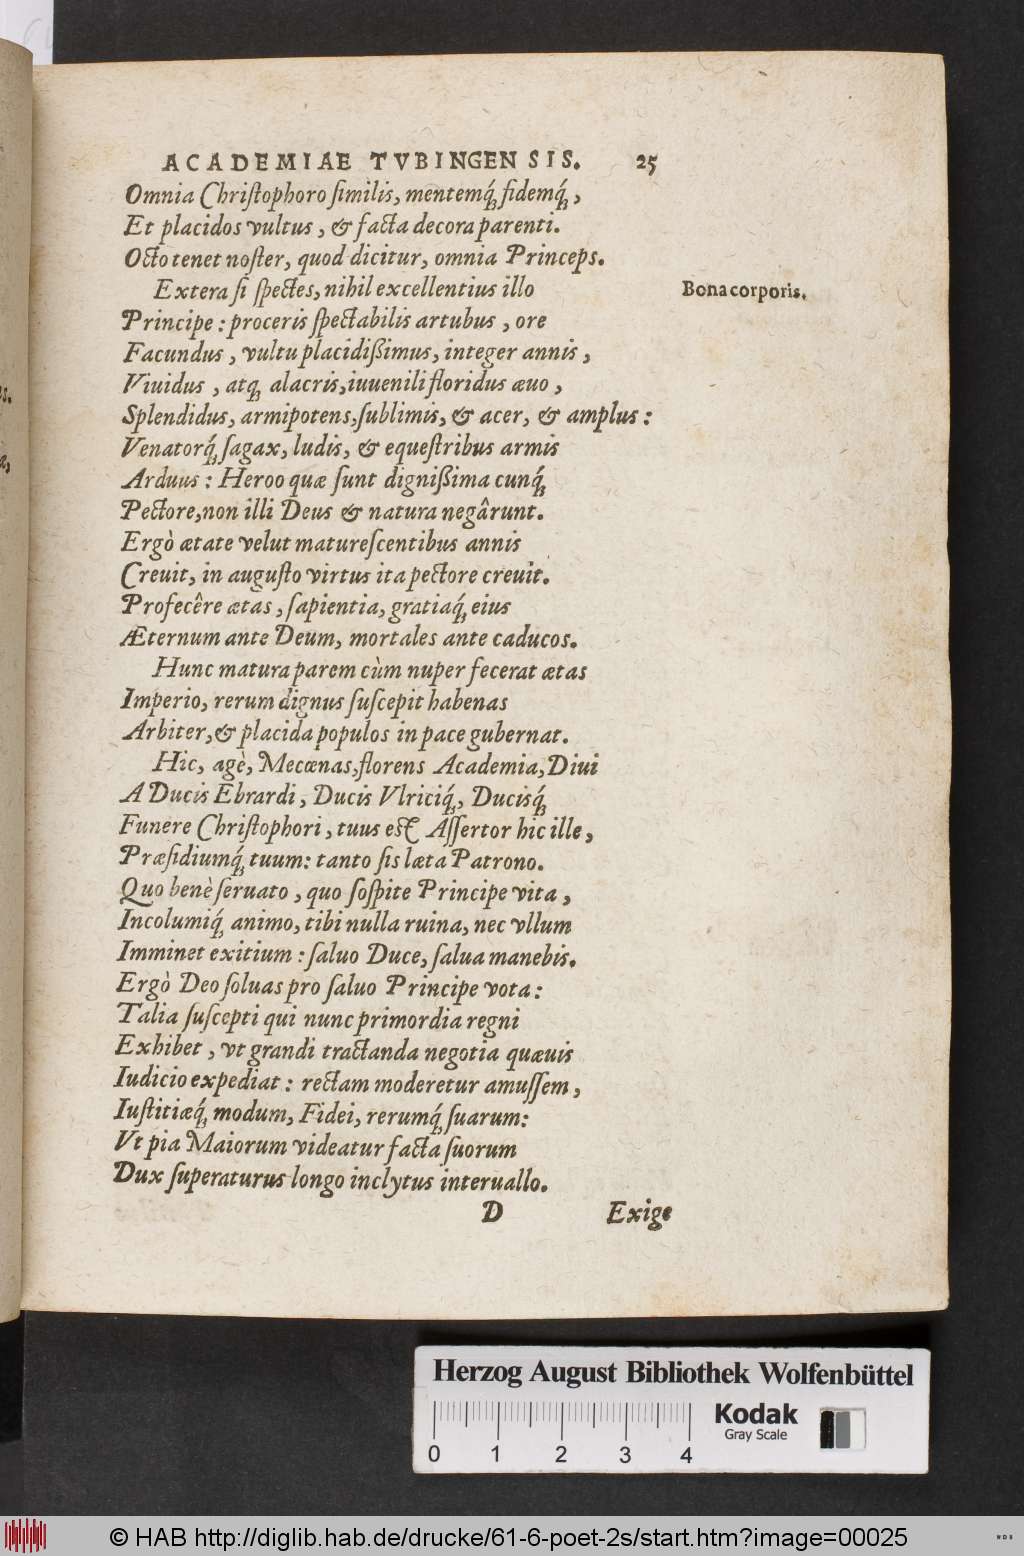 ACADEMIAE TVBINGENSIS. 25
Omnia Chriſtophoro ſimilis, mentemq́ꝫ fidemq́ꝫ,
Et placidos vultus, & facta decora parenti.
Octo tenet noſter, quod dicitur, omnia Princeps.
Extera ſi ſpectes, nihil excellentius illo
Bona corporis.
Principe: proceris ſpectabilis artubus, ore
Facundus, vultu placidißimus, integer annis,
Viuidus, atqꝫ alacris, iuuenili floridus æuo,
Splendidus, armipotens, ſublimis, & acer, & amplus:
Venatorq́ꝫ ſagax, ludis, & equeſtribus armis
Arduus: Heroo quæ ſunt dignißima cunq́ꝫ
Pectore, non illi Deus & natura negârunt.
Ergò ætate velut matureſcentibus annis
Creuit, in auguſto virtus ita pectore creuit.
Profecêre ætas, ſapientia, gratiaq́ꝫ eius
Æternum ante Deum, mortales ante caducos.
Hunc matura parem cùm nuper fecerat ætas
Imperio, rerum dignus ſuſcepit habenas
Arbiter, & placida populos in pace gubernat.
Hic, agè, Mecœnas, florens Academia, Diui
A Ducis Ebrardi, Ducis Vlriciq́ꝫ, Ducisq́ꝫ
Funere Chriſtophori, tuus eſt Aſſertor hic ille,
Præſidiumq́ꝫ tuum: tanto ſis læta Patrono.
Quo benè ſeruato, quo ſoſpite Principe vita,
Incolumiq́ꝫ animo, tibi nulla ruina, nec vllum
Imminet exitium: ſaluo Duce, ſalua manebis.
Ergò Deo ſoluas pro ſaluo Principe vota:
Talia ſuſcepti qui nunc primordia regni
Exhibet, vt grandi tractanda negotia quæuis
Iudicio expediat: rectam moderetur amuſſem,
Iuſtitiæq́ꝫ modum, Fidei, rerumq́ꝫ ſuarum:
Vt pia Maiorum videatur facta ſuorum
Dux ſuperaturus longo inclytus interuallo.
D Exige
Herzog August Bibliothek Wolfenbüttel
Kodak
Gray Scale
0 1 2 3 4
© HAB http://diglib.hab.de/drucke/61-6-poet-2s/start.htm?image=00025